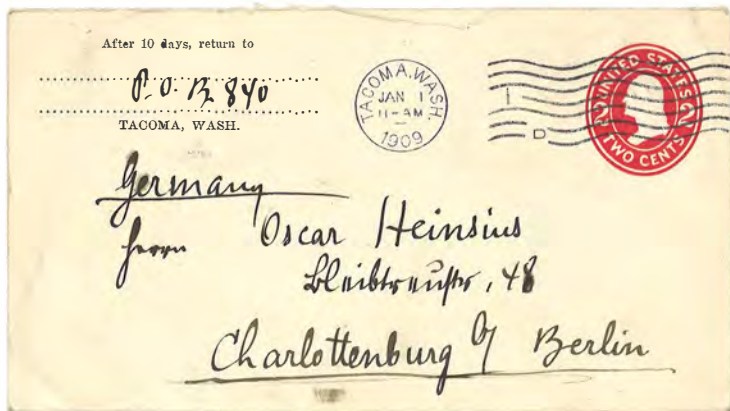 After 10 days, return to
P. O. B. 840
TACOMA, WASH.
TACOMA, WASH.
JAN 1
11-AM
1909
D
UNITED STATES
TWO CENTS
Germany
Herrn Oscar Heinsius
Bleibtreustr, 48
Charlottenburg b/ Berlin